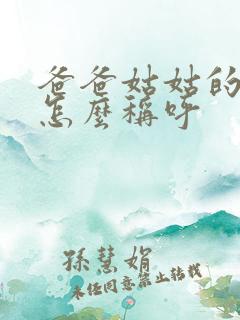 爸爸姑姑的
怎麼稱呼
孫慧娟
未经同意禁止转载